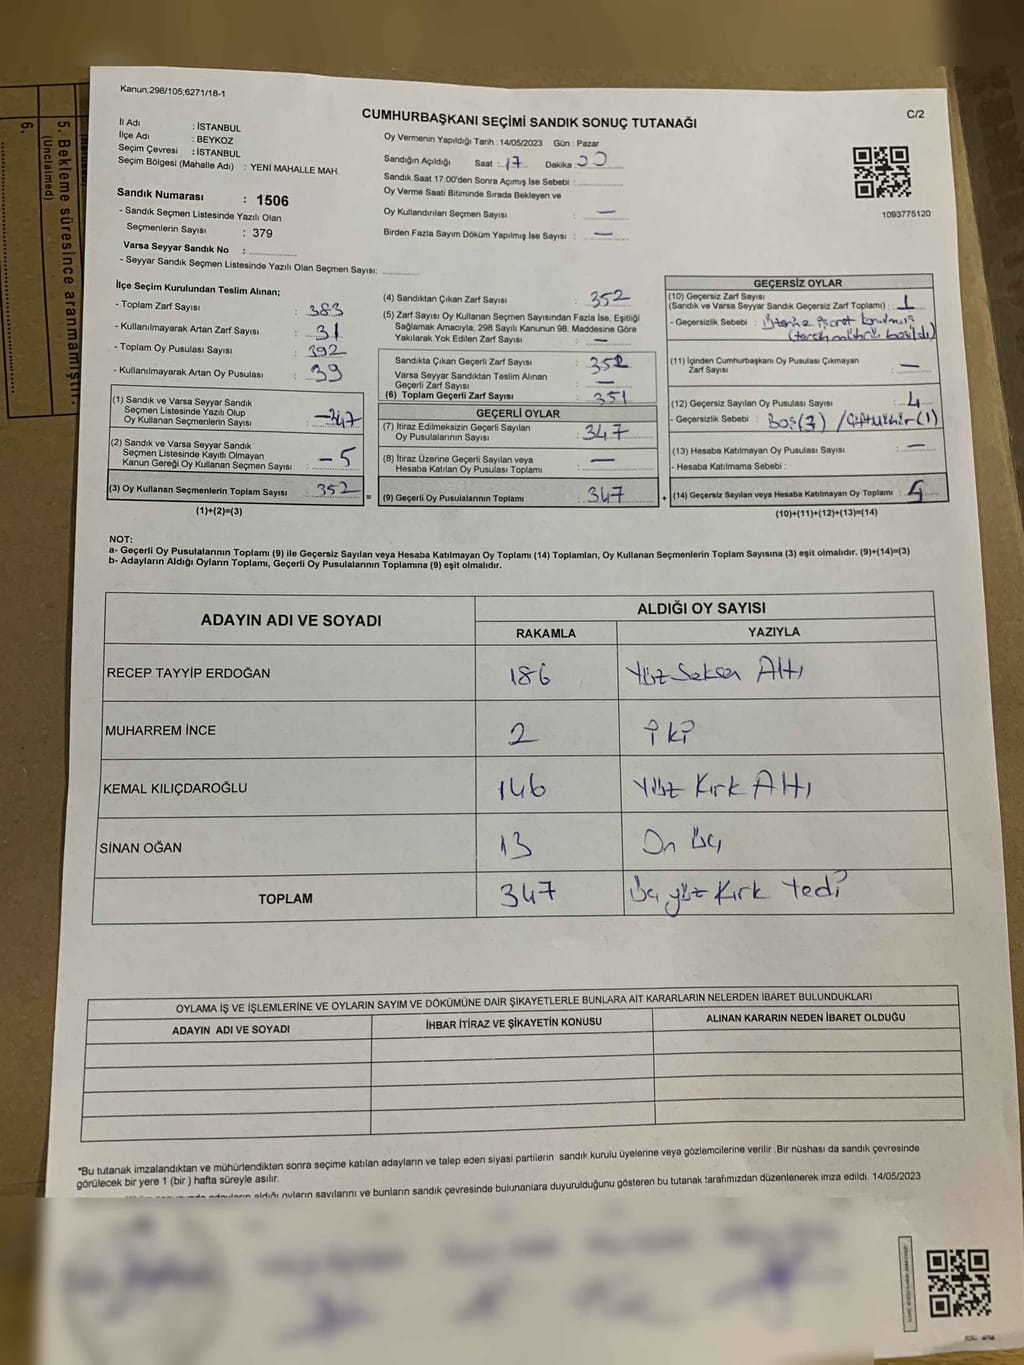 Kanun;298/105;6271/18-1
C/2
CUMHURBAŞKANI SEÇİMİ SANDIK SONUÇ TUTANAĞI
İl Adı : İSTANBUL
İlçe Adı : BEYKOZ
Seçim Çevresi : İSTANBUL
Seçim Bölgesi (Mahalle Adı) : YENİ MAHALLE MAH.
Sandık Numarası : 1506
- Sandık Seçmen Listesinde Yazılı Olan
Seçmenlerin Sayısı : 379
Varsa Seyyar Sandık No :
- Seyyar Sandık Seçmen Listesinde Yazılı Olan Seçmen Sayısı:
Oy Vermenin Yapıldığı Tarih : 14/05/2023 Gün : Pazar
Sandığın Açıldığı Saat : 17 Dakika :
Sandık Saat 17:00'den Sonra Açımış İse Sebebi :
Oy Verme Saati Bitiminde Sırada Bekleyen ve
Oy Kullandırılan Seçmen Sayısı : —
Birden Fazla Sayım Döküm Yapılmış İse Sayısı : —
1093775120
İlçe Seçim Kurulundan Teslim Alınan;
- Toplam Zarf Sayısı : 383
- Kullanılmayarak Artan Zarf Sayısı : 31
- Toplam Oy Pusulası Sayısı : 392
- Kullanılmayarak Artan Oy Pusulası : 39
(1) Sandık ve Varsa Seyyar Sandık
Seçmen Listesinde Yazılı Olup
Oy Kullanan Seçmenlerin Sayısı : 347
(2) Sandık ve Varsa Seyyar Sandık
Seçmen Listesinde Kayıtlı Olmayan
Kanun Gereği Oy Kullanan Seçmen Sayısı : - 5
(3) Oy Kullanan Seçmenlerin Toplam Sayısı : 352
(1)+(2)=(3)
=
(4) Sandıktan Çıkan Zarf Sayısı : 352
(5) Zarf Sayısı Oy Kullanan Seçmen Sayısından Fazla İse, Eşitliği
Sağlamak Amacıyla, 298 Sayılı Kanunun 98. Maddesine Göre
Yakılarak Yok Edilen Zarf Sayısı : —
Sandıkta Çıkan Geçerli Zarf Sayısı : 352
Varsa Seyyar Sandıktan Teslim Alınan
Geçerli Zarf Sayısı : —
(6) Toplam Geçerli Zarf Sayısı : 351
GEÇERLİ OYLAR
(7) İtiraz Edilmeksizin Geçerli Sayılan
Oy Pusulalarının Sayısı : 347
(8) İtiraz Üzerine Geçerli Sayılan veya
Hesaba Katılan Oy Pusulası Toplamı : —
(9) Geçerli Oy Pusulalarının Toplamı : 347
+
GEÇERSİZ OYLAR
(10) Geçersiz Zarf Sayısı
(Sandık ve Varsa Seyyar Sandık Geçersiz Zarf Toplamı) : 1
- Geçersizlik Sebebi : işaret konulmuş
(tercih mührü basıldı)
(11) İçinden Cumhurbaşkanı Oy Pusulası Çıkmayan
Zarf Sayısı : —
(12) Geçersiz Sayılan Oy Pusulası Sayısı : 4
- Geçersizlik Sebebi : Boş(3) / Çift Mühür (1)
(13) Hesaba Katılmayan Oy Pusulası Sayısı : —
- Hesaba Katılmama Sebebi :
(14) Geçersiz Sayılan veya Hesaba Katılmayan Oy Toplamı :
(10)+(11)+(12)+(13)=(14)
NOT:
a- Geçerli Oy Pusulalarının Toplamı (9) ile Geçersiz Sayılan veya Hesaba Katılmayan Oy Toplamı (14) Toplamları, Oy Kullanan Seçmenlerin Toplam Sayısına (3) eşit olmalıdır. (9)+(14)=(3)
b- Adayların Aldığı Oyların Toplamı, Geçerli Oy Pusulalarının Toplamına (9) eşit olmalıdır.
ADAYIN ADI VE SOYADI ALDIĞI OY SAYISI
RAKAMLA YAZIYLA
RECEP TAYYİP ERDOĞAN 186 Yüz Seksen Altı
MUHARREM İNCE 2 iki
KEMAL KILIÇDAROĞLU 146 Yüz Kırk Altı
SİNAN OĞAN 13 On üç
TOPLAM 347 Üç yüz Kırk Yedi
OYLAMA İŞ VE İŞLEMLERİNE VE OYLARIN SAYIM VE DÖKÜMÜNE DAİR ŞİKAYETLERLE BUNLARA AİT KARARLARIN NELERDEN İBARET BULUNDUKLARI
ADAYIN ADI VE SOYADI İHBAR İTİRAZ VE ŞİKAYETİN KONUSU ALINAN KARARIN NEDEN İBARET OLDUĞU
*Bu tutanak imzalandıktan ve mühürlendikten sonra seçime katılan adayların ve talep eden siyasi partilerin sandık kurulu üyelerine veya gözlemcilerine verilir .Bir nüshası da sandık çevresinde
görülecek bir yere 1 (bir ) hafta süreyle asılır.
adayların aldığı oyların sayılarını ve bunların sandık çevresinde bulunanlara duyurulduğunu gösteren bu tutanak tarafımızdan düzenlenerek imza edildi. 14/05/2023
5. Bekleme süresince aranmamıştır.
(Unclaimed)
6.